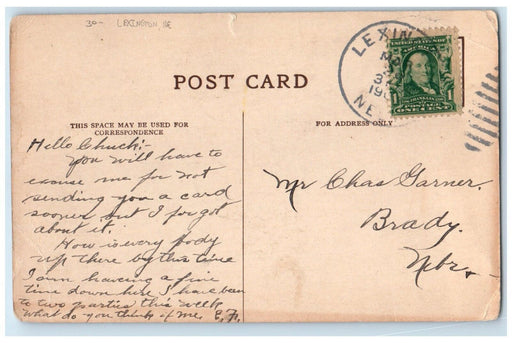 30- LEXINGTON, NE
LEXIN
NE
UNITED STATES OF
AMERICA
POST CARD
THIS SPACE MAY BE USED FOR
CORRESPONDENCE
FOR ADDRESS ONLY
Hello Chuck:-
You will have to
excuse me for not
sending you a card
sooner but I forgot
about it.
How is every body
up there by this time
I am haveing a fine
time down here I have been
to two parties this week
what do you think of me. E.F.
Mr Chas Garner.
Brady.
Nebr.